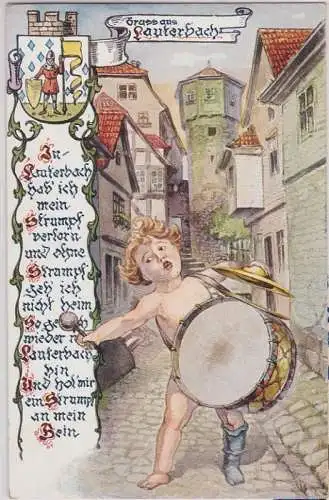 Gruss aus
Lauterbach
In
Lauterbach
hab' ich
mein
Strumpf
verlorn
und ohne
Strumpf
geh ich
nicht heim
So geh ich
wieder n.
Lauterbach
hin
Und hol' mir
ein Strumpf
an mein
Bein